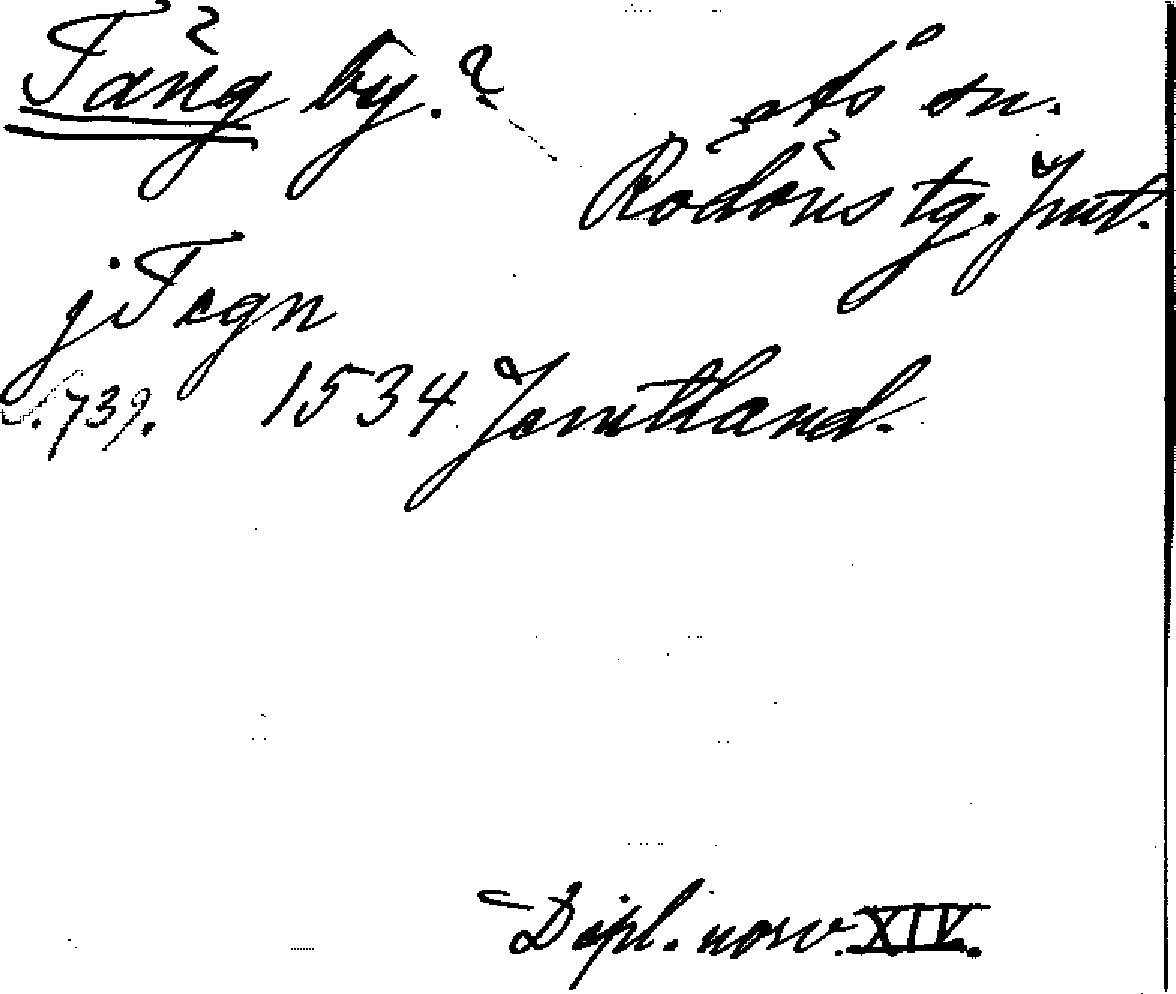 Täng by.?
Ås sn.
Rödöns tg. Jmt.
j Tegn
s. 739. 1534 Jemtland.
Dipl. norv. XIV.